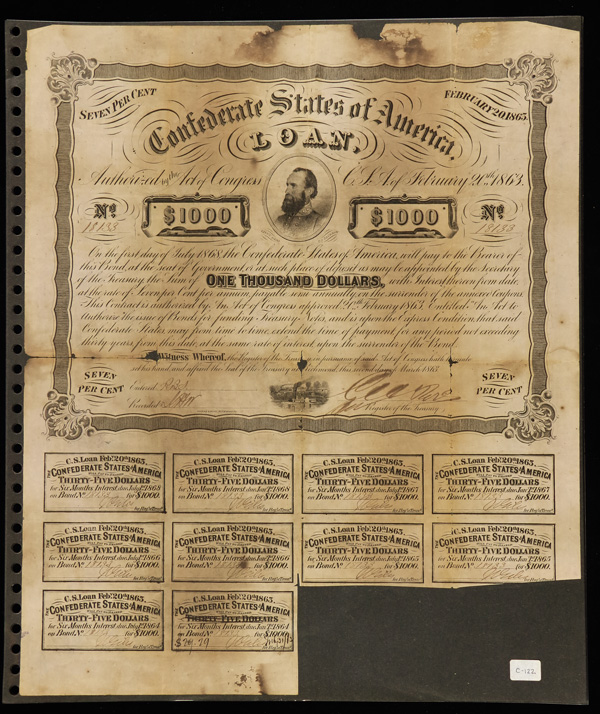 SEVEN PER CENT
FEBRUARY 20, 1863.
Confederate States of America.
LOAN,
Authorized by the Act of Congress C. S. A. of February 20th 1863.
No.
$1000
$1000
No.
18133
18133
On the first day of July 1868, the Confederate States of America, will pay to the Bearer of
this Bond, at the seat of Government or at such place of deposit as may be appointed by the Secretary
of the Treasury, the Sum of ONE THOUSAND DOLLARS, with Interest thereon from date,
at the rate of Seven per Cent per annum, payable semi-annually on the surrender of the annexed Coupons.
This Contract is authorized by An Act of Congress approved February 1863, entitled "An Act to
authorize the issue of Bonds for funding Treasury Notes, and is upon the Express Condition that said
Confederate States may from time to time, extend the time of payment for any period not exceeding
thirty years from this date, at the same rate of interest upon the surrender of the Bond.
Witness Whereof, the Register of the Treasury in pursuance of said Act of Congress hath
set his hand, and affixed the Seal of the Treasury at Richmond this second day of March 1863.
SEVEN
PER CENT
Entered
Recorded
Register of the Treasury
SEVEN
PER CENT
C.S. Loan Feb. 20th 1863.
THE CONFEDERATE STATES OF AMERICA
THIRTY-FIVE DOLLARS
for Six Months Interest due July 1st 1868
on Bond No. for $1000.
C.S. Loan Feb. 20th 1863.
THE CONFEDERATE STATES OF AMERICA
THIRTY-FIVE DOLLARS
for Six Months Interest due Jany 1st 1868
on Bond No. for $1000.
C.S. Loan Feb. 20th 1863.
THE CONFEDERATE STATES OF AMERICA
THIRTY-FIVE DOLLARS
for Six Months Interest due July 1st 1867
on Bond No. for $1000.
C.S. Loan Feb. 20th 1863.
THE CONFEDERATE STATES OF AMERICA
THIRTY-FIVE DOLLARS
for Six Months Interest due Jany 1st 1867
on Bond No. for $1000.
C.S. Loan Feb. 20th 1863.
THE CONFEDERATE STATES OF AMERICA
THIRTY-FIVE DOLLARS
for Six Months Interest due July 1st 1866
on Bond No. for $1000.
C.S. Loan Feb. 20th 1863.
THE CONFEDERATE STATES OF AMERICA
THIRTY-FIVE DOLLARS
for Six Months Interest due Jany 1st 1866
on Bond No. for $1000.
C.S. Loan Feb. 20th 1863.
THE CONFEDERATE STATES OF AMERICA
THIRTY-FIVE DOLLARS
for Six Months Interest due July 1st 1865
on Bond No. for $1000.
C.S. Loan Feb. 20th 1863.
THE CONFEDERATE STATES OF AMERICA
THIRTY-FIVE DOLLARS
for Six Months Interest due Jany 1st 1865
on Bond No. for $1000.
C.S. Loan Feb. 20th 1863.
THE CONFEDERATE STATES OF AMERICA
THIRTY-FIVE DOLLARS
for Six Months Interest due July 1st 1864
on Bond No. for $1000.
C.S. Loan Feb. 20th 1863.
THE CONFEDERATE STATES OF AMERICA
THIRTY-FIVE DOLLARS
for Six Months Interest due Jany 1st 1864
on Bond No. for $1000.
$29.29